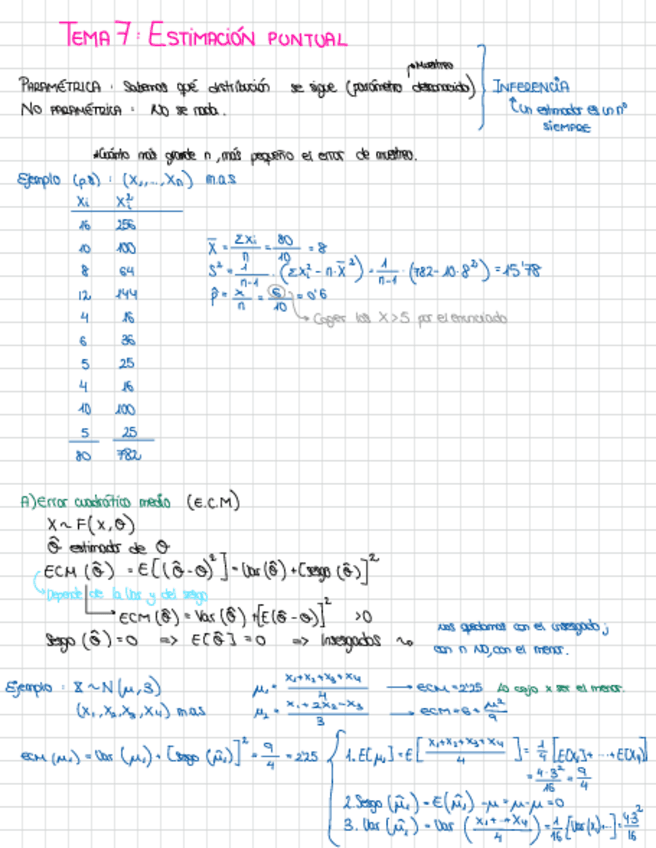 TEMA 7: ESTIMACIÓN PUNTUAL
Muestreo
PARAMÉTRICA: Sabemos qué distribución se sigue (parámetro desconocido)
NO PARAMÉTRICA: No se nada.
INFERENCIA
un estimador es un nº
SIEMPRE
*Cuánto más grande n, más pequeño el error de muestreo.
Ejemplo (p.8): (X₁,..., Xn) m.a.s
Xi Xi²
16 256
10 100
8 64
12 144
4 16
6 36
5 25
4 16
10 100
5 25
80 782
X̄ = ΣXi/n = 80/10 = 8
S² = 1/(n-1) · (ΣXi² - n·X̄²) = 1/(n-1) · (782 - 10·8²) = 15'78
p̂ = x/n = 6/10 = 0'6
→ Coger los X>5 por el enunciado
A) error cuadrático medio (E.C.M)
X ~ F(x, θ)
θ̂ estimador de θ
ECM (θ̂) = E[(θ̂ - θ)²] = Var(θ̂) + [sesgo (θ̂)]²
Depende de la Var y del sesgo
→ ECM (θ̂) = Var (θ̂) + [E(θ̂ - θ)]² >0
Sesgo (θ̂) = 0 => E[θ̂] = θ => Insesgados
nos quedamos con el insesgado;
con n NO, con el menor.
Ejemplo: X ~ N(μ, 3)
(X₁, X₂, X₃, X₄) m.a.s
μ₁ = (X₁+X₂+X₃+X₄)/4 → ECM = 2'25 Lo cojo x ser el menor.
μ₂ = (X₁+2X₂-X₃)/3 → ECM = 6 + μ²/9
ECM (μ₁) = Var (μ₁) + [Sesgo (μ̂₁)]² = 9/4 = 2'25
1. E[μ₁] = E[(X₁+X₂+X₃+X₄)/4] = 1/4 [E(X₁)+ ··· +E(X₄)]
= 4·3²/16 = 9/4
2. Sesgo (μ̂₁) = E(μ̂₁) - μ = μ - μ = 0
3. Var (μ̂₁) = Var ((X₁+··+X₄)/4) = 1/16 [Var(X₁)...] = 4·3²/16